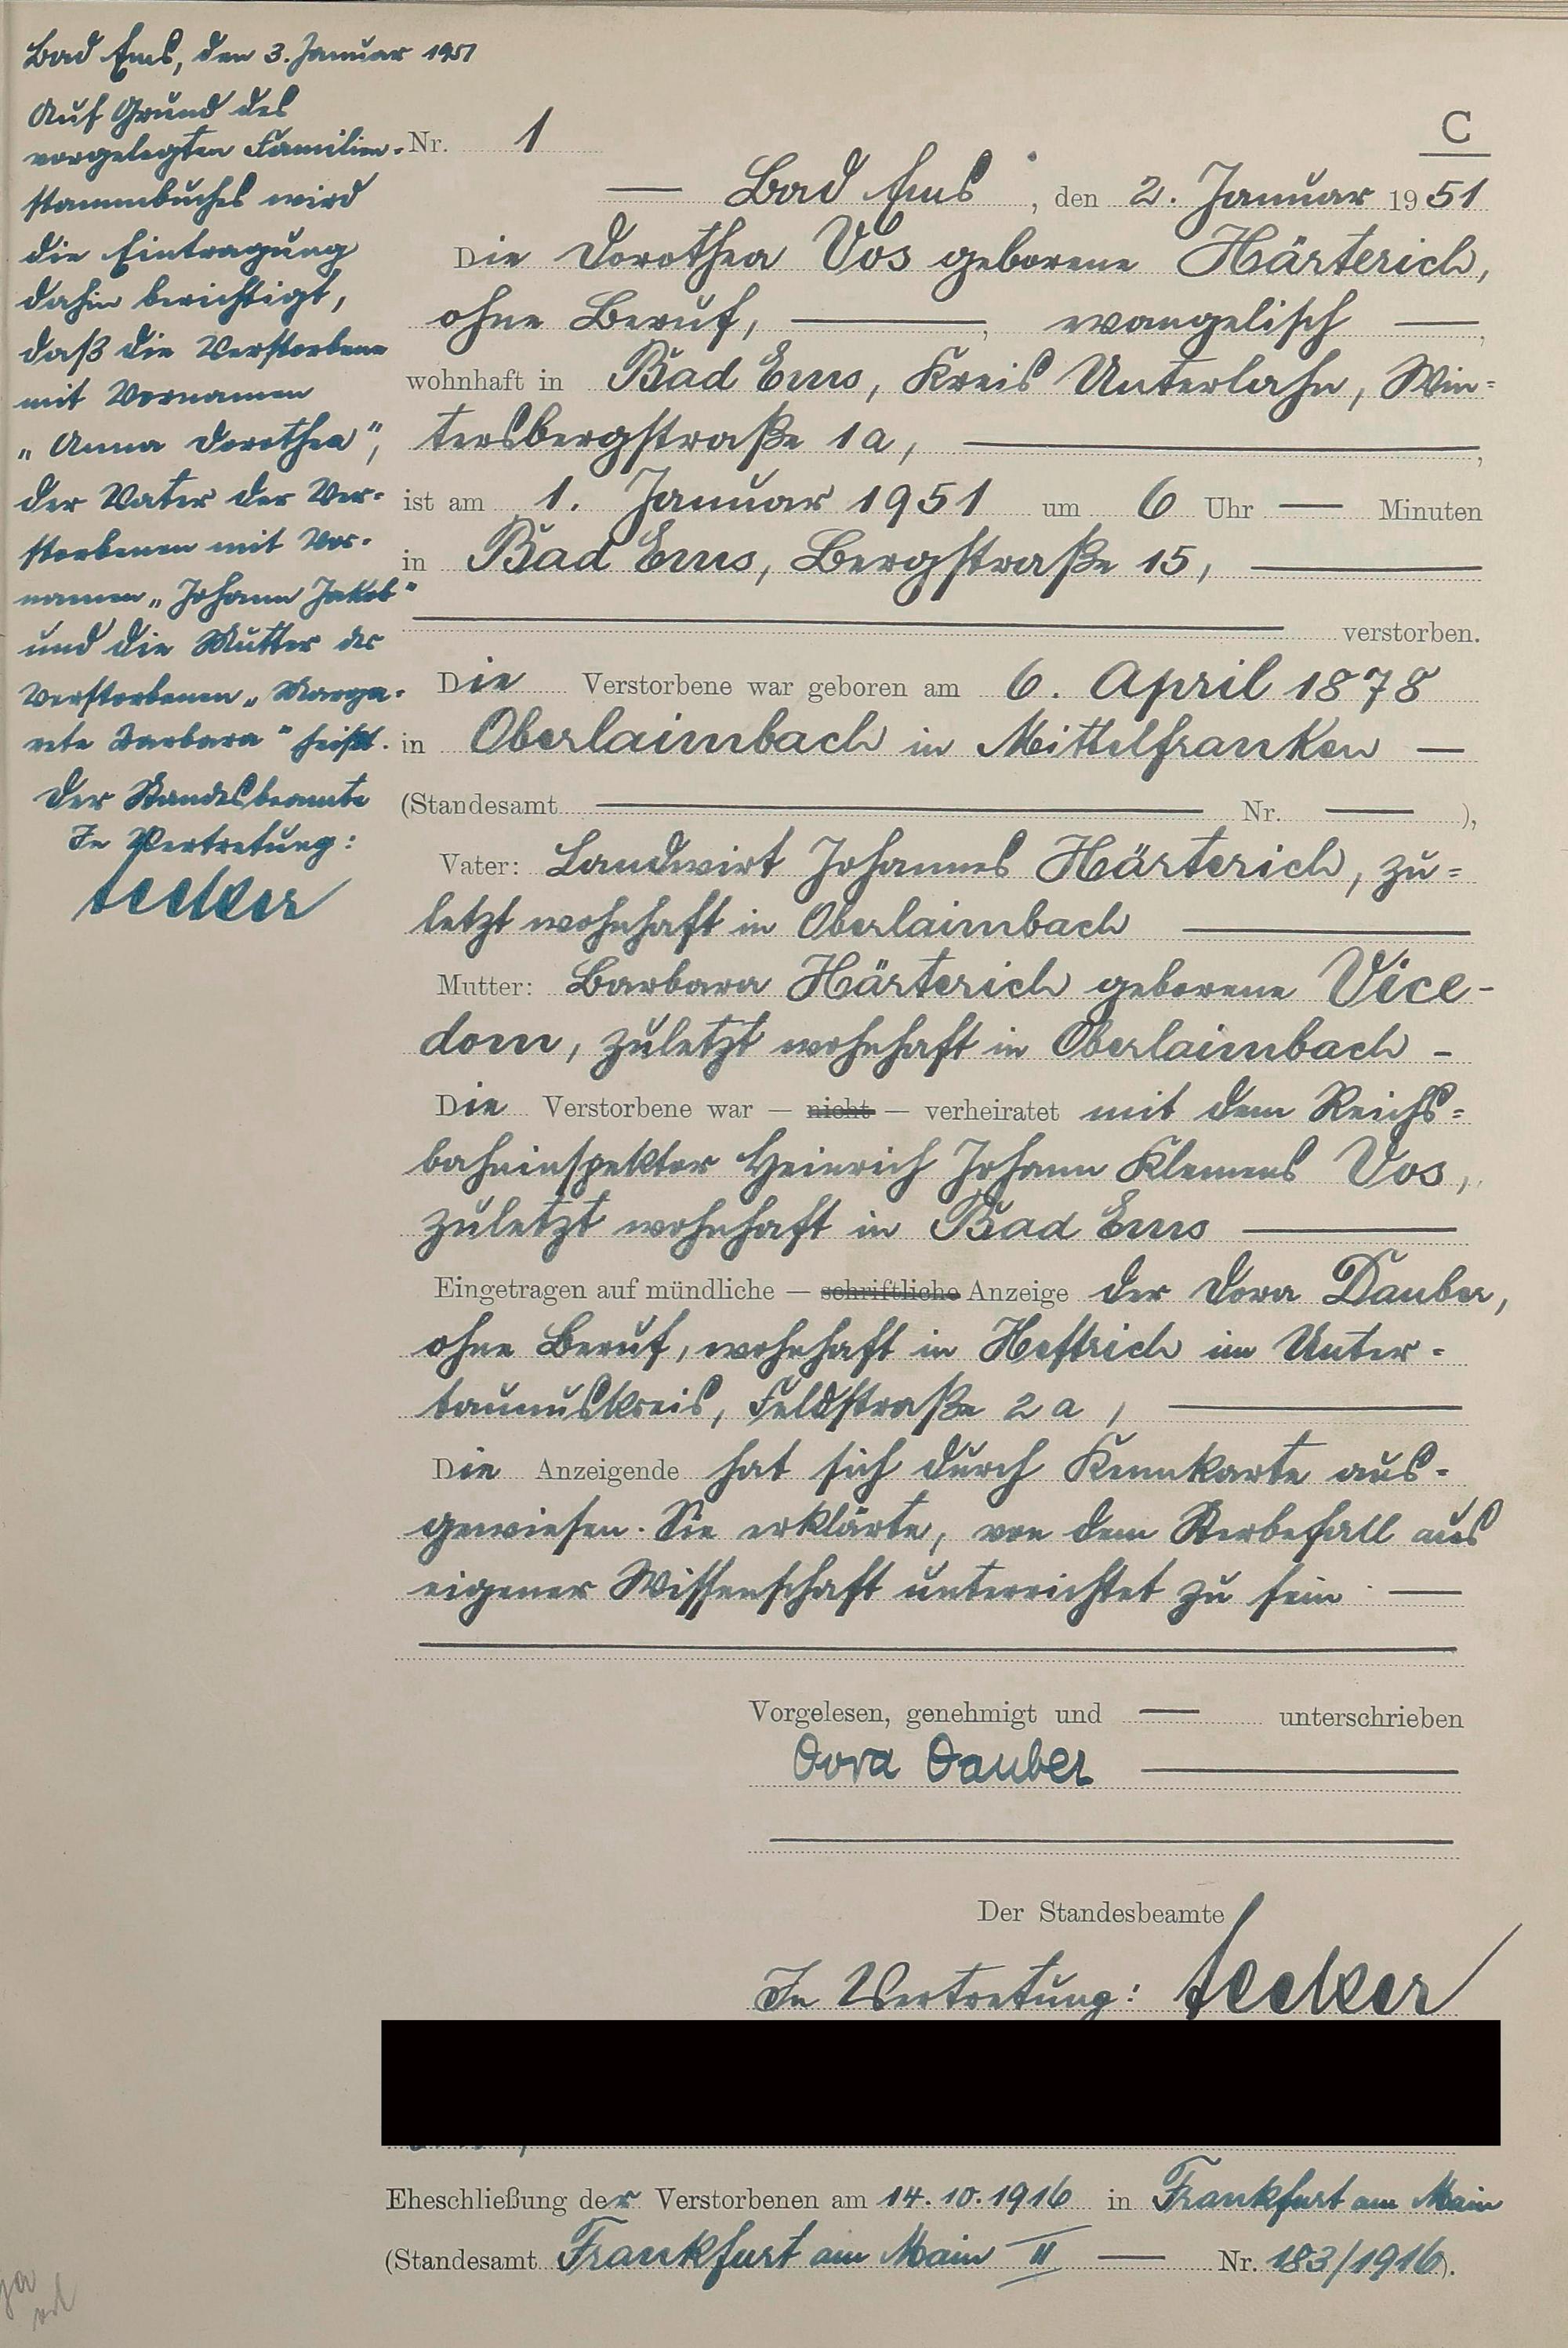 Bad Ems, den 3. Januar 1951
Auf Grund des
vorgelegten Familien-
stammbuches wird
die Eintragung
dahin berichtigt,
daß die Verstorbene
mit Vornamen
„Anna Dorothea",
der Vater der Ver-
storbenen mit Vor-
namen „Johann Jakob"
und die Mutter der
Verstorbenen „Marga-
rete Barbara" heißt.
Der Standesbeamte
In Vertretung:
C
Nr. 1
— Bad Ems, den 2. Januar 1951
Die Dorothea Vos geborene Härterich,
ohne Beruf, —, evangelisch —,
wohnhaft in Bad Ems, Kreis Unterlahn, Win=
tersbergstraße 1a, —,
ist am 1. Januar 1951 um 6 Uhr — Minuten
in Bad Ems, Bergstraße 15, —
— verstorben.
Die Verstorbene war geboren am 6. April 1878
in Oberlaimbach in Mittelfranken —
(Standesamt — Nr. —),
Vater: Landwirt Johannes Härterich, zu=
letzt wohnhaft in Oberlaimbach —
Mutter: Barbara Härterich geborene Vice-
dom, zuletzt wohnhaft in Oberlaimbach -
Die Verstorbene war — nicht — verheiratet mit dem Reichs=
bahninspektor Heinrich Johann Klemens Vos,
zuletzt wohnhaft in Bad Ems —
Eingetragen auf mündliche — schriftliche Anzeige der Dora Dauber,
ohne Beruf, wohnhaft in Heftrich im Unter-
taunuskreis, Feldstraße 2a, —
Die Anzeigende hat sich durch Kennkarte aus-
gewiesen. Sie erklärte, von dem Sterbefall aus
eigener Wissenschaft unterrichtet zu sein —
Vorgelesen, genehmigt und — unterschrieben
Dora Dauber —
Der Standesbeamte
In Vertretung:
Eheschließung der Verstorbenen am 14.10.1916 in Frankfurt am Main
(Standesamt Frankfurt am Main II — Nr. 183/1916).